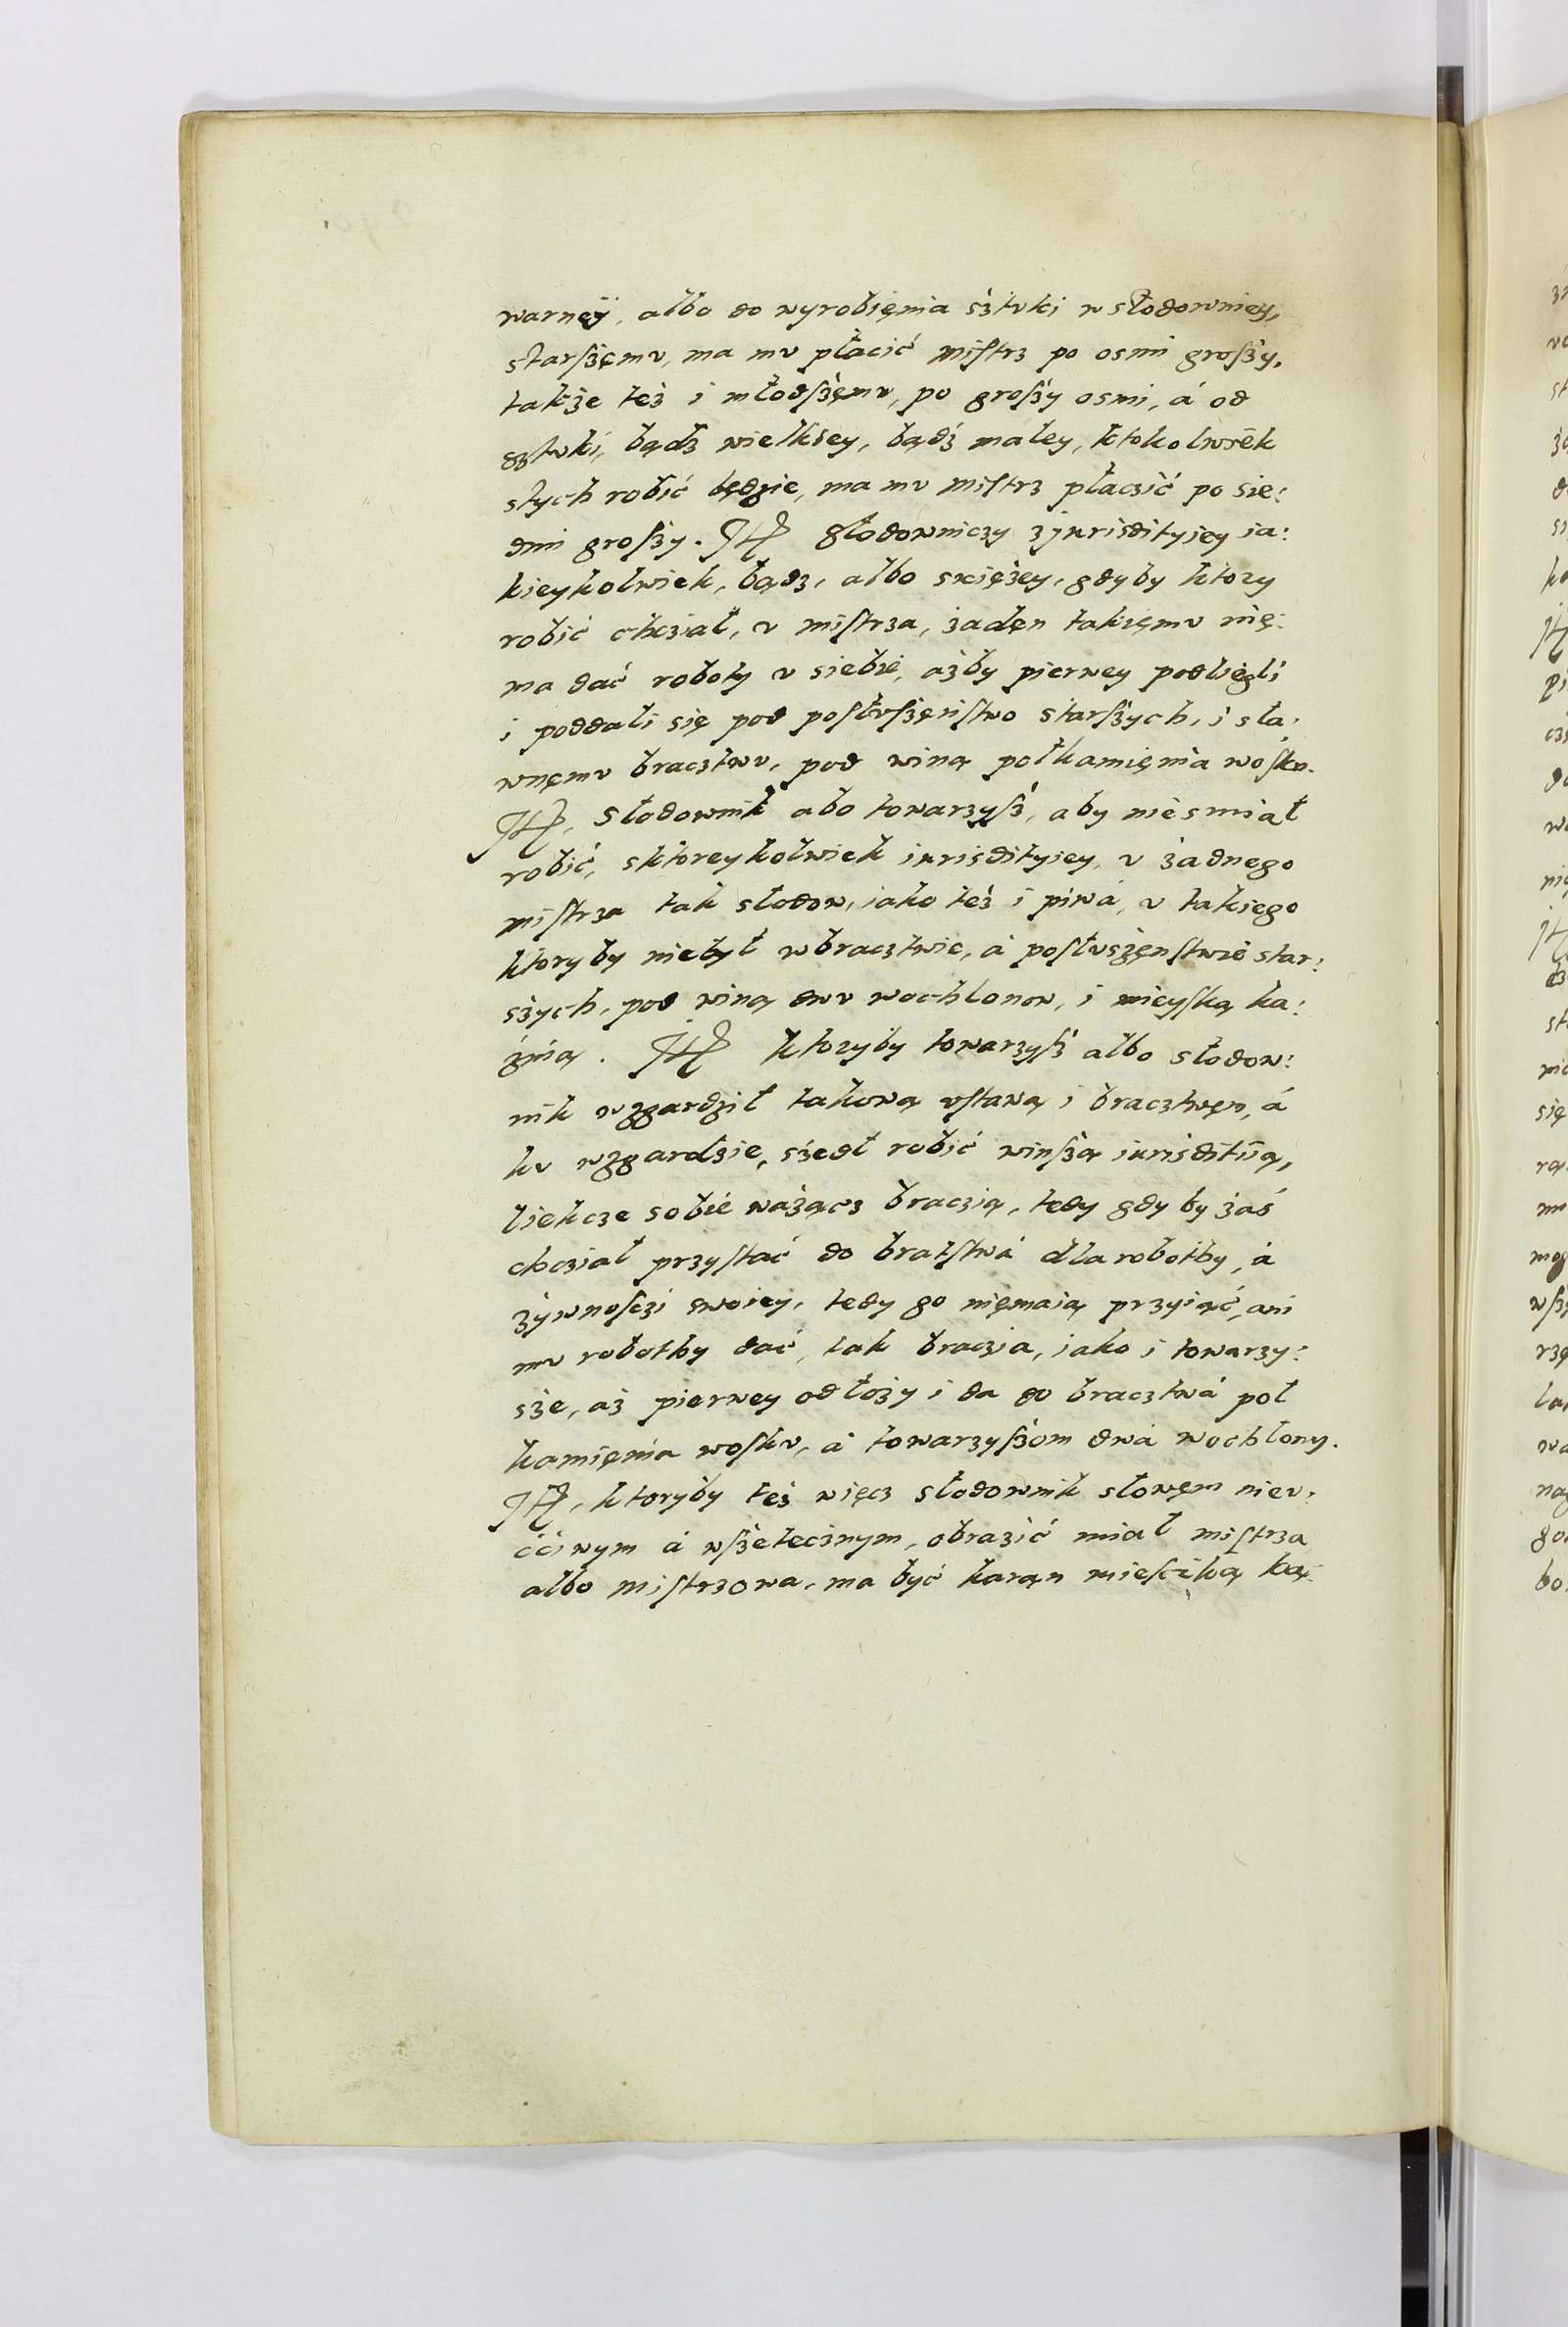 warnęÿ, albo do wyrobięnia sżtvki w słodowniey,
starſżęmv, ma mv płacić miſtrz po osmi groſży,
także też i młodſżęmv, po groſży osmi, á od
sztvki, bądz wielksey, bądź maley, ktokolwiek
stych robić będzie, ma mv miſtrz płaczić po sie:
dmi groſży. Jtp słodowniczy zjurisdityiey ia:
kieykolwiek, bądz, albo sxiężey, gdyby ktory
robić chcział, v miſtrza, żadęn takięmv nię:
ma dać roboty v siebie, ażby pierwey podliegli
i poddali się pod poſłvſżęńſtwo starſżych, i sła:
wnęmv bracztwv, pod winą połkamięnia woſkv.
Jtp, Słodownik abo towarzyſż, aby nieśmiał
robić, sktoreykolwiek iurisdityiey, v żadnego
miſtrza tak słodow, iako też i piwá, v takiego
ktoryby niebył wbracztwie, á poſłvszęnſtwie star:
szych, pod winą dwv wochlonow, i mieyſką ka:
źnią. Jtp ktoryby towarzyſż albo słodow:
nik wzgardził takową vſtawą i bracztwęm, á
kv wzgardzie, szedł robić winſżą iurisditiią,
liekcze sobie ważącz braczią, tedy gdy by żaś
chcział przyſtać do bratſtwá dla robothy, á
żywnoſczi swoiey, tedy go nięmaią przyiąć, ani
mv robothy dać, tak braczia, iako i towarzy:
sże, aż pierwey odłoży i da do bracztwá poł
kamięnia woſkv, á towarzyſżom dwá wochlony.
Jtp, ktoryby też więcz słodownik słowęm niev:
ććiwym á wſżetecżnym, obrazić miał miſtrza
albo miſtrzowa, ma być karąn mieſcżką ka: